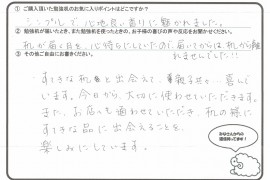 ① ご購入頂いた勉強机のお気に入りポイントはどこですか?
シンプルで、心地良い香りに魅かれました。
② 勉強机が届いたとき、また勉強机を使ったときの、お子様の喜びの声や反応をお聞かせください。
机が届く日を、心待ちにしていたので、届いてからは、机から離れませんでした!!
③ その他ご自由にお書きください。
すてきな机と出会えて、親子で喜んでいます。今日から、大切に使わせていただきます。
また、お店へも通わせていただき、机の様にすてきな品に出会えることを、
楽しみにしています。
みなさんからの